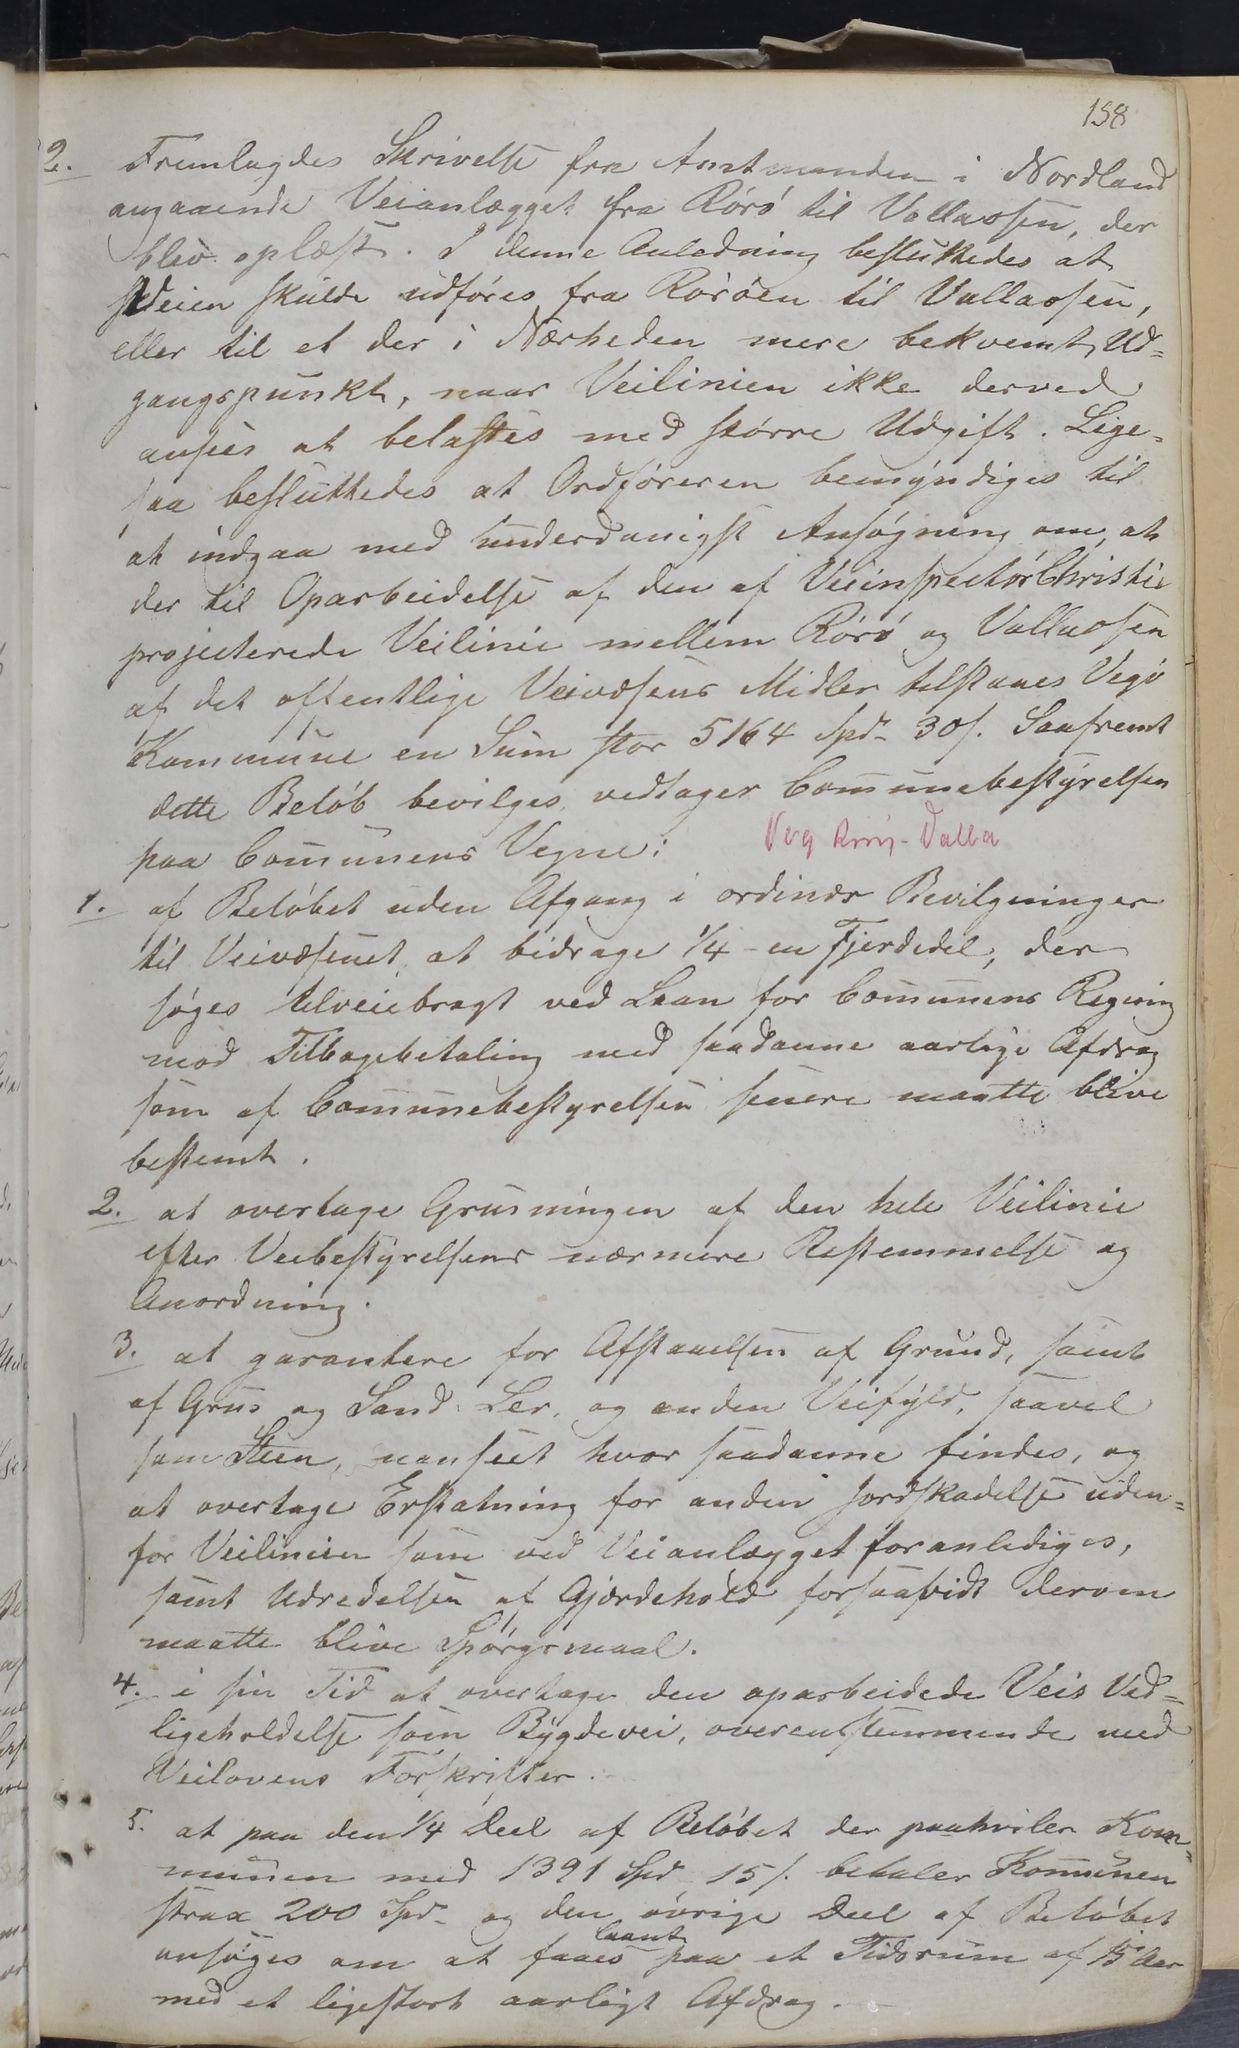 158
2. Fremlagdes Skrivelse fra Amtmanden i Nordland
angaaende Veianlægget fra Rørø til Vallaosen, der
blev oplæst. I denne Anledning besluttedes at
Veien skulde udføres fra Rørøen til Vallaosen,
eller til et der i Nærheden mere bekvemt Ud-
gangspunkt, naar Veilinien ikke derved
ansees at belastes med større Udgift. Lige-
saa besluttedes at Ordføreren bemyndiges til
at indgaa med underdanigst Ansøgning om, at
der til Oparbeidelse af den af Veiinspectør Christie
projecterede Veilinie mellem Rørø og Vallaosen
af det offentlige Veivæsens Midler tilstaaes Vegø
Kommune en Sum stor 5164 Spd. 30 s. Saafremt
dette Beløb bevilges, vedtager Communebestyrelsen
paa Communens Vegne:
Veg Rørøy - Valla
1. af Beløbet uden Afgang i ordinær Bevilgninger
til Veivæsenet, at bidrage 1/4 - en Fjerdedel, der
søges tilveiebragt ved Laan for Communens Regning
mod Tilbagebetaling med saadanne aarlige Afdrag
som af Communebestyrelsen senere maatte blive
bestemt.
2. at overtage Grusningen af den hele Veilinie
efter Veibestyrelsens nærmere Bestemmelse og
Anordning.
3. at garantere for Afstaaelsen af Grund, samt
af Grus og Sand, Ler, og anden Veifyld, saavel
som Steen, uanseet hvor saadanne findes, og
at overtage Erstatning for anden Jordskadelse uden-
for Veilinien som ved Veianlægget foranlediges,
samt Udredelsen af Gjærdehold forsaavidt derom
maatte blive Spørgsmaal.
4. i sin Tid at overtage den oparbeidede Veis Ved-
ligeholdelse som Bygdevei, overenstemmende med
Veilovens Forskrifter.
5. at paa den 1/4 Deel af Beløbet der paahviler Kom-
munen med 1391 Spd 15 s. betaler Kommunen
strax 200 Spd. og den øvrige Deel af Beløbet
ansøges om at faaes laant paa et Tidsrum af 15 Aar
med et ligestort aarligt Afdrag.